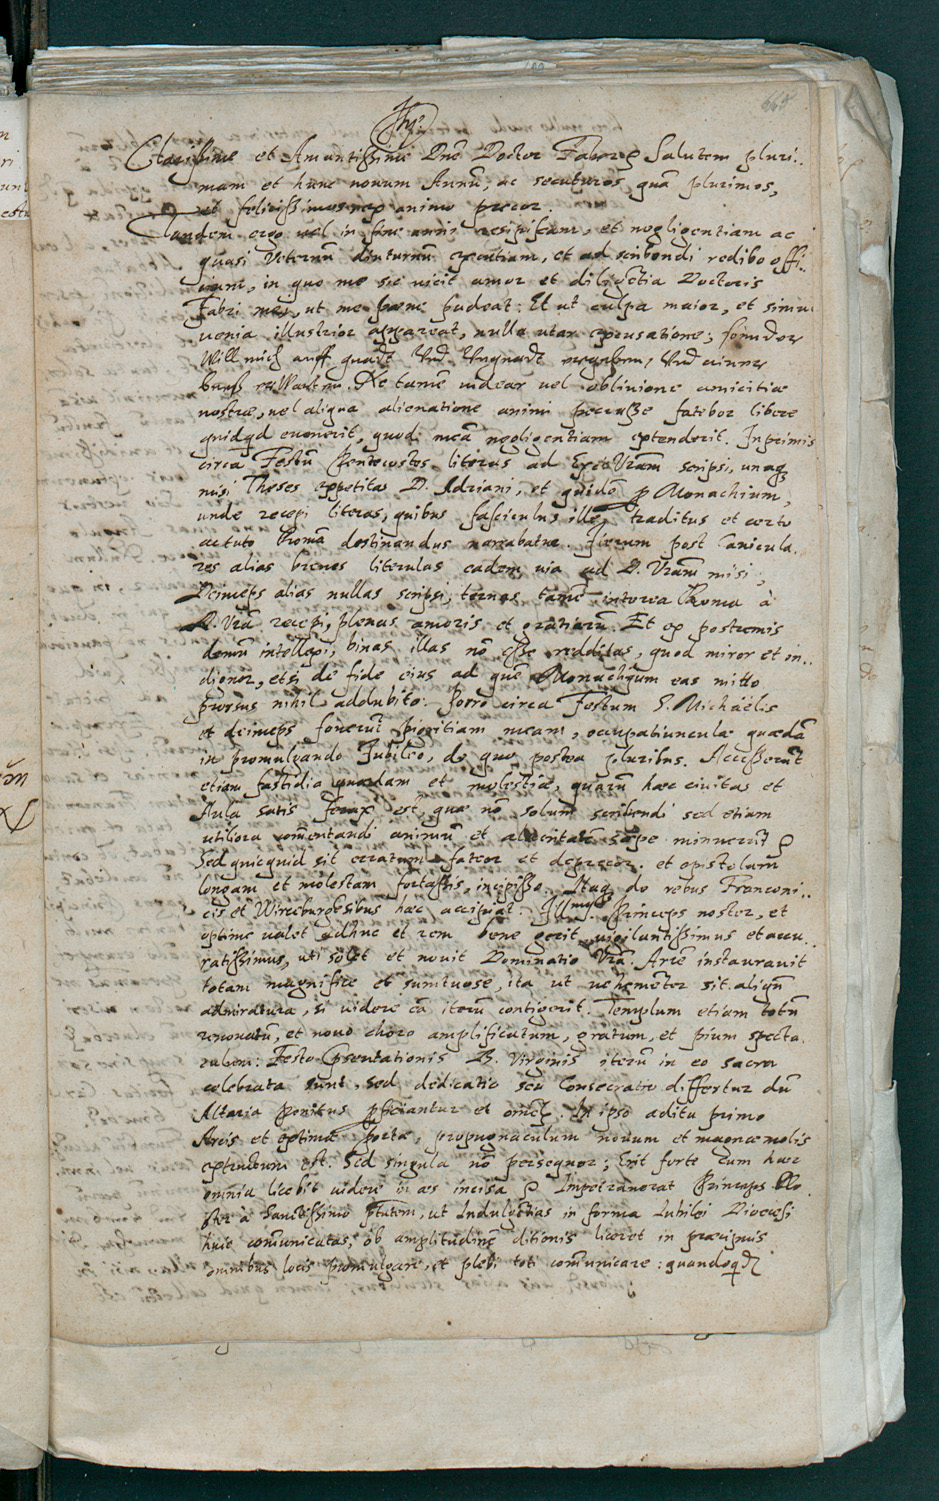 Jhs.
Clarissime et Amantissime Dne Doctor Faber Salutem pluri..
mam et hunc nouum Annū, ac secuturos quā plurimos,
et felicissimos ex animo precor.
Tandem ergo vel in fine anni resipiscam, et negligentiam ac
quasi veternū diuturnū excutiam, et ad scribendi redibo offi..
cium, in quo me sic vicit amor et diligētia Doctoris
Fabri mei, ut me paene pudeat. Et ut culpa maior, et simul
uenia illustrior appareat, nulla utar excusatione; sonder
Will mich auff gnadt Vnd Vngnadt ergeben, Vnd einer
buess erWartten. Ne tamē videar vel obliuione amicitiae
nostrae, vel aliqua alienatione animi peccasse fatebor libere
quidqd euenerit, quod meā negligentiam extenderit. Inprimis
circa Festū Pentecostes literas ad Exc. Vram scripsi, unaq
misi Theses expetitas D. Adriani, et quidē p Monachium,
unde recepi literas, quibus fasciculus ille traditus et certo
actuto Romā destinandus narrabatur. Iterum post Canicula..
res alias breues literulas eadem via ad D. Vram misi,
Deinceps alias nullas scripsi, ternas tamē interea Roma à
D. Vrā recepi, plenas amoris et gratiarū. Et ex postremis
demū intellexi, binas illas nō esse redditas, quod miror et in..
dignor, etsi de fide eius ad quē Monachium eas mitto
prorsus nihil addubito. Porro circa Festum S. Michaëlis
et deinceps fouerūt pigritiam meam, occupatiunculae quaedā
in promulgando Iubileo, de quo postea pluribus. Accesserūt
etiam fastidia quaedam et molestiae, quarū haec ciuitas et
Aula satis ferax est, quae nō solum scribendi sed etiam
utiliora cōmentandi animū et alacritatē saepe minuerūt
Sed quicquid sit erratum fateor et deprecor, et epistolam
longam et molestam fortassis, incipisso. Itaq de rebus Franconi..
cis et Wirceburgēsibus haec accipiat. Illmus Princeps noster, et
optime valet adhuc et rem bene gerit vigilantissimus et accu..
ratissimus, uti solet et nouit Dominatio Vrā. Arcē instaurauit
totam magnifice et sumtuose, ita ut vehemēter sit aliqn
admiratura, si videre eā iterū contigerit. Templum etiam totū
renouatū, et nouo choro amplificatum, gratum, et pium specta..
culum: Festo Psentationis B. Virginis iterū in eo sacra
celebrata sunt, sed dedicatio seu Consecratio differtur dū
Altaria penitus pficiantur et omīa. In ipso aditu primo
Arcis et optima porta, propugnaculum nouum et magnae molis
extructum est. Sed singula nō persequor; Erit forte cum haec
omnia licebit videre in aes incisa. Impetrauerat Princeps No..
ster à Sanctissimo ptatem, ut Indulgētias in forma Iubilei Dioecesi
huic communicatas, ob amplitudinē ditionis liceret in praecipuis
omnibus locis promulgare, et plebi toti cōmunicare: quandoqd